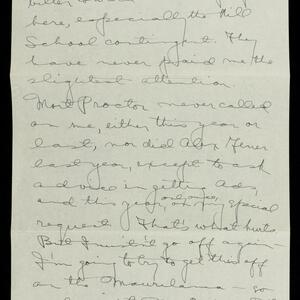 bitter toward
here, especially the Hill
School contingent. They
have never paid me the
slightest attention.
Mort Proctor never called
on me, either this year or
last, nor did Alex
last year, except to ask
advice in getting Ads,
and this year, only once, on my special
request. That's what hurts
But I mustn't go off again—
I'm going to try to get this off
on the Mauretania — so